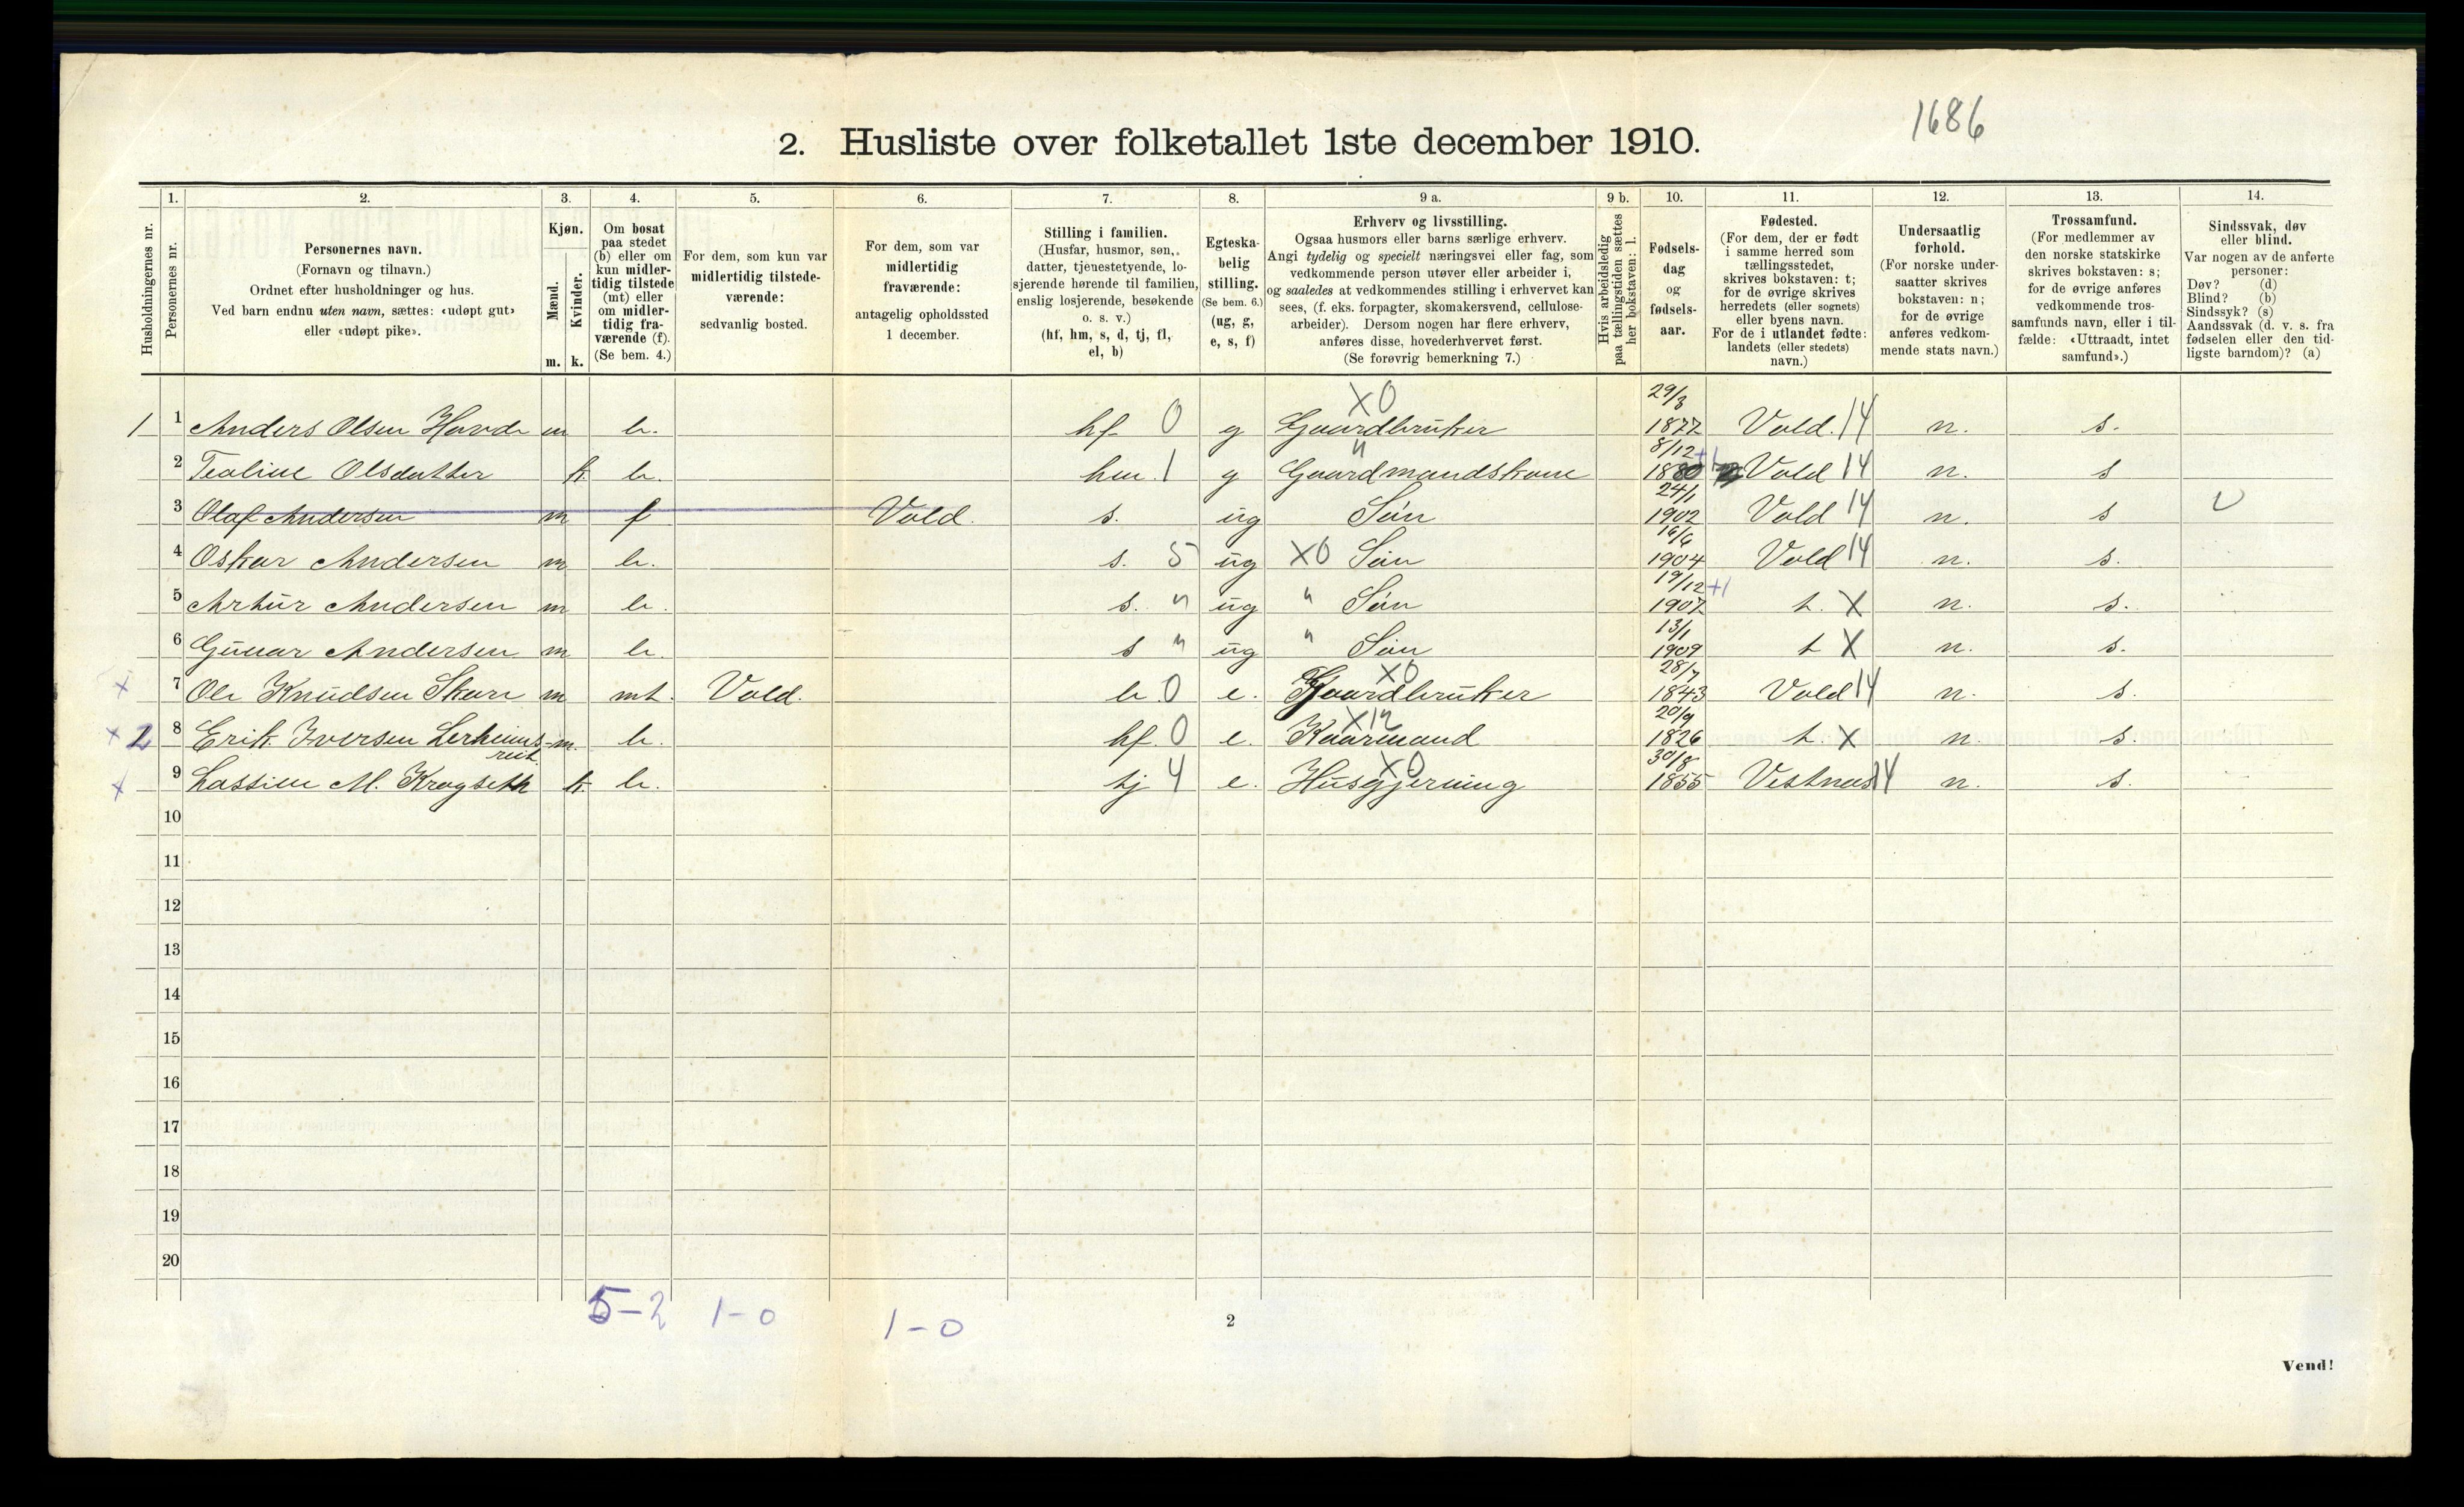 1686
2. Husliste over folketallet 1ste december 1910.
1. 2. 3. 4. 5. 6. 7. 8. 9 a. 9 b. 10. 11. 12. 13. 14.
Husholdningernes nr.
Personernes nr.
Personernes navn.
(Fornavn og tilnavn.)
Ordnet efter husholdninger og hus.
Ved barn endnu uten navn, sættes: «udøpt gut»
eller «udøpt pike».
Kjøn.
Mænd.
Kvinder.
m. k.
Om bosat
paa stedet
(b) eller om
kun midler-
tidig tilstede
(mt) eller
om midler-
tidig fra-
værende (f).
(Se bem. 4.)
For dem, som kun var
midlertidig tilstede-
værende:
sedvanlig bosted.
For dem, som var
midlertidig
fraværende:
antagelig opholdssted
1 december.
Stilling i familien.
(Husfar, husmor, søn,
datter, tjenestetyende, lo-
sjerende hørende til familien,
enslig losjerende, besøkende
o. s. v.)
(hf, hm, s, d, tj, fl,
el, b)
Egteska-
belig
stilling.
(Se bem. 6.)
(ug, g,
e, s, f)
Erhverv og livsstilling.
Ogsaa husmors eller barns særlige erhverv.
Angi tydelig og specielt næringsvei eller fag, som
vedkommende person utøver eller arbeider i,
og saaledes at vedkommendes stilling i erhvervet kan
sees, (f. eks. forpagter, skomakersvend, cellulose-
arbeider). Dersom nogen har flere erhverv,
anføres disse, hovederhvervet først.
(Se forøvrig bemerkning 7.)
Hvis arbeidsledig
paa tællingstiden sættes
her bokstaven: l.
Fødsels-
dag
og
fødsels-
aar.
Fødested.
(For dem, der er født
i samme herred som
tællingsstedet,
skrives bokstaven: t;
for de øvrige skrives
herredets (eller sognets)
eller byens navn.
For de i utlandet fødte:
landets (eller stedets)
navn.)
Undersaatlig
forhold.
(For norske under-
saatter skrives
bokstaven: n;
for de øvrige
anføres vedkom-
mende stats navn.)
Trossamfund.
(For medlemmer av
den norske statskirke
skrives bokstaven: s;
for de øvrige anføres
vedkommende tros-
samfunds navn, eller i til-
fælde: «Uttraadt, intet
samfund».)
Sindssvak, døv
eller blind.
Var nogen av de anførte
personer:
Døv? (d)
Blind? (b)
Sindssyk? (s)
Aandssvak (d. v. s. fra
fødselen eller den tid-
ligste barndom)? (a)
X0 29/3
1 1 Anders Olsen Hovde m b. hf 0 g Gaardbruker 1877 Vold. 14 n. s.
" 8/12 +1
2 Teoline Olsdatter k. b. hm. 1 g Gaardmandskone 1880 Vold 14 n. s
24/1
3 Olaf Andersen m f Vold. s. ug Søn 1902 Vold 14 n. s
16/6
4 Oskar Andersen m b. s. 5 ug X0 Søn 1904 Vold 14 n. s.
19/12 +1
5 Artur Andersen m b. s. " ug " Søn 1907 t. X n. s.
13/1
6 Gunar Andersen m b. s " ug " Søn 1909 t X n. s.
X0 28/7
x 7 Ole Knudsen Skare m mt. Vold. b. 0 e. Gaardbruker 1843 Vold 14 n. s.
X12 20/9
x 2 8 Erik Iversen Lerheims- m. b. hf. 0 e. Kaarmand 1826 t. X n. s.
reit.
X0 30/8
x 9 Lassine M. Kragseth k. b. tj 4 e. Husgjerning 1855 Vestnes 14 n. s.
10
11
12
13
14
15
16
17
18
19
20
5-2 1-0 1-0
2
Vend!